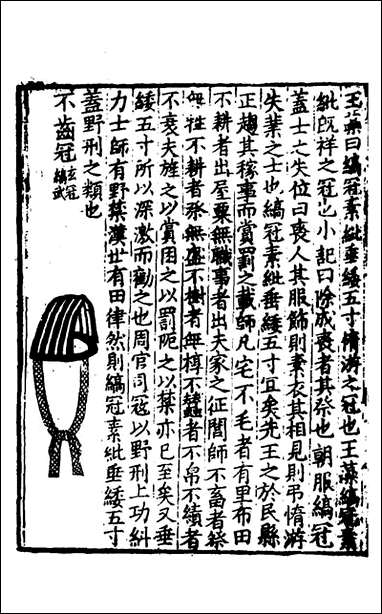 王藻曰縞冠素紕垂緌五寸惰游之冠也玉藻縞冠素
紕既祥之冠也小記曰除成喪者其祭也朝服縞冠
蓋士之失位曰喪人其服飾則素衣其相見則弔惰游
失業之士也縞冠素紕垂緌五寸宜矣先王之於民縣
正趨其稼事而賞罰之載師凡宅不毛者有里布田
不耕者出屋粟無職事者出夫家之征閭師不畜者祭
無牲不耕者祭無盛不樹者無椁不蠶者不帛不績者
不衰夫旌之以賞困之以罰阨之以禁亦已至矣又垂
緌五寸所以深激而勸之也周官司冦以野刑上功糾
力士師有野禁漢世有田律然則縞冠素紕垂緌五寸
蓋野刑之類也
不齒冠玄冠縞武